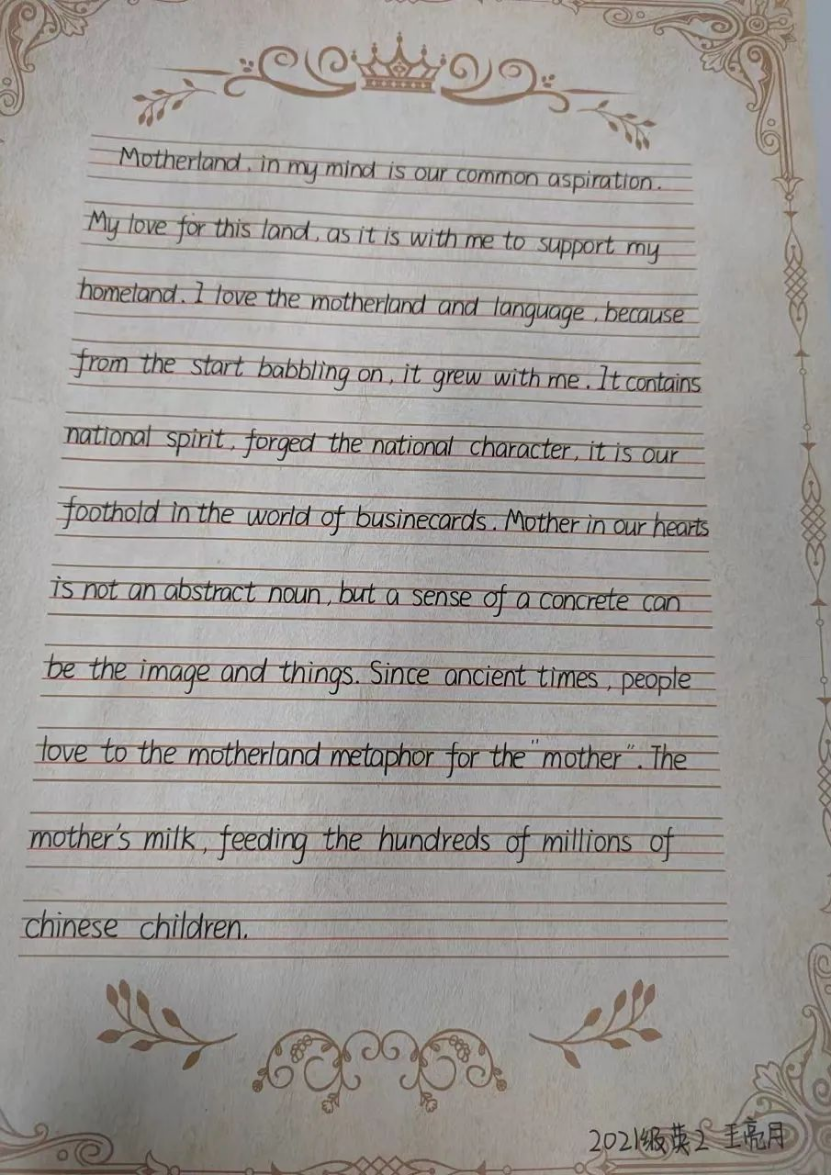 Motherland, in my mind is our common aspiration.
My love for this land, as it is with me to support my
homeland. I love the motherland and language, because
from the start babbling on, it grew with me. It contains
national spirit, forged the national character, it is our
foothold in the world of businecards. Mother in our hearts
is not an abstract noun, but a sense of a concrete can
be the image and things. Since ancient times, people
love to the motherland metaphor for the "mother". The
mother's milk, feeding the hundreds of millions of
chinese children.
2021级英2 王亮月